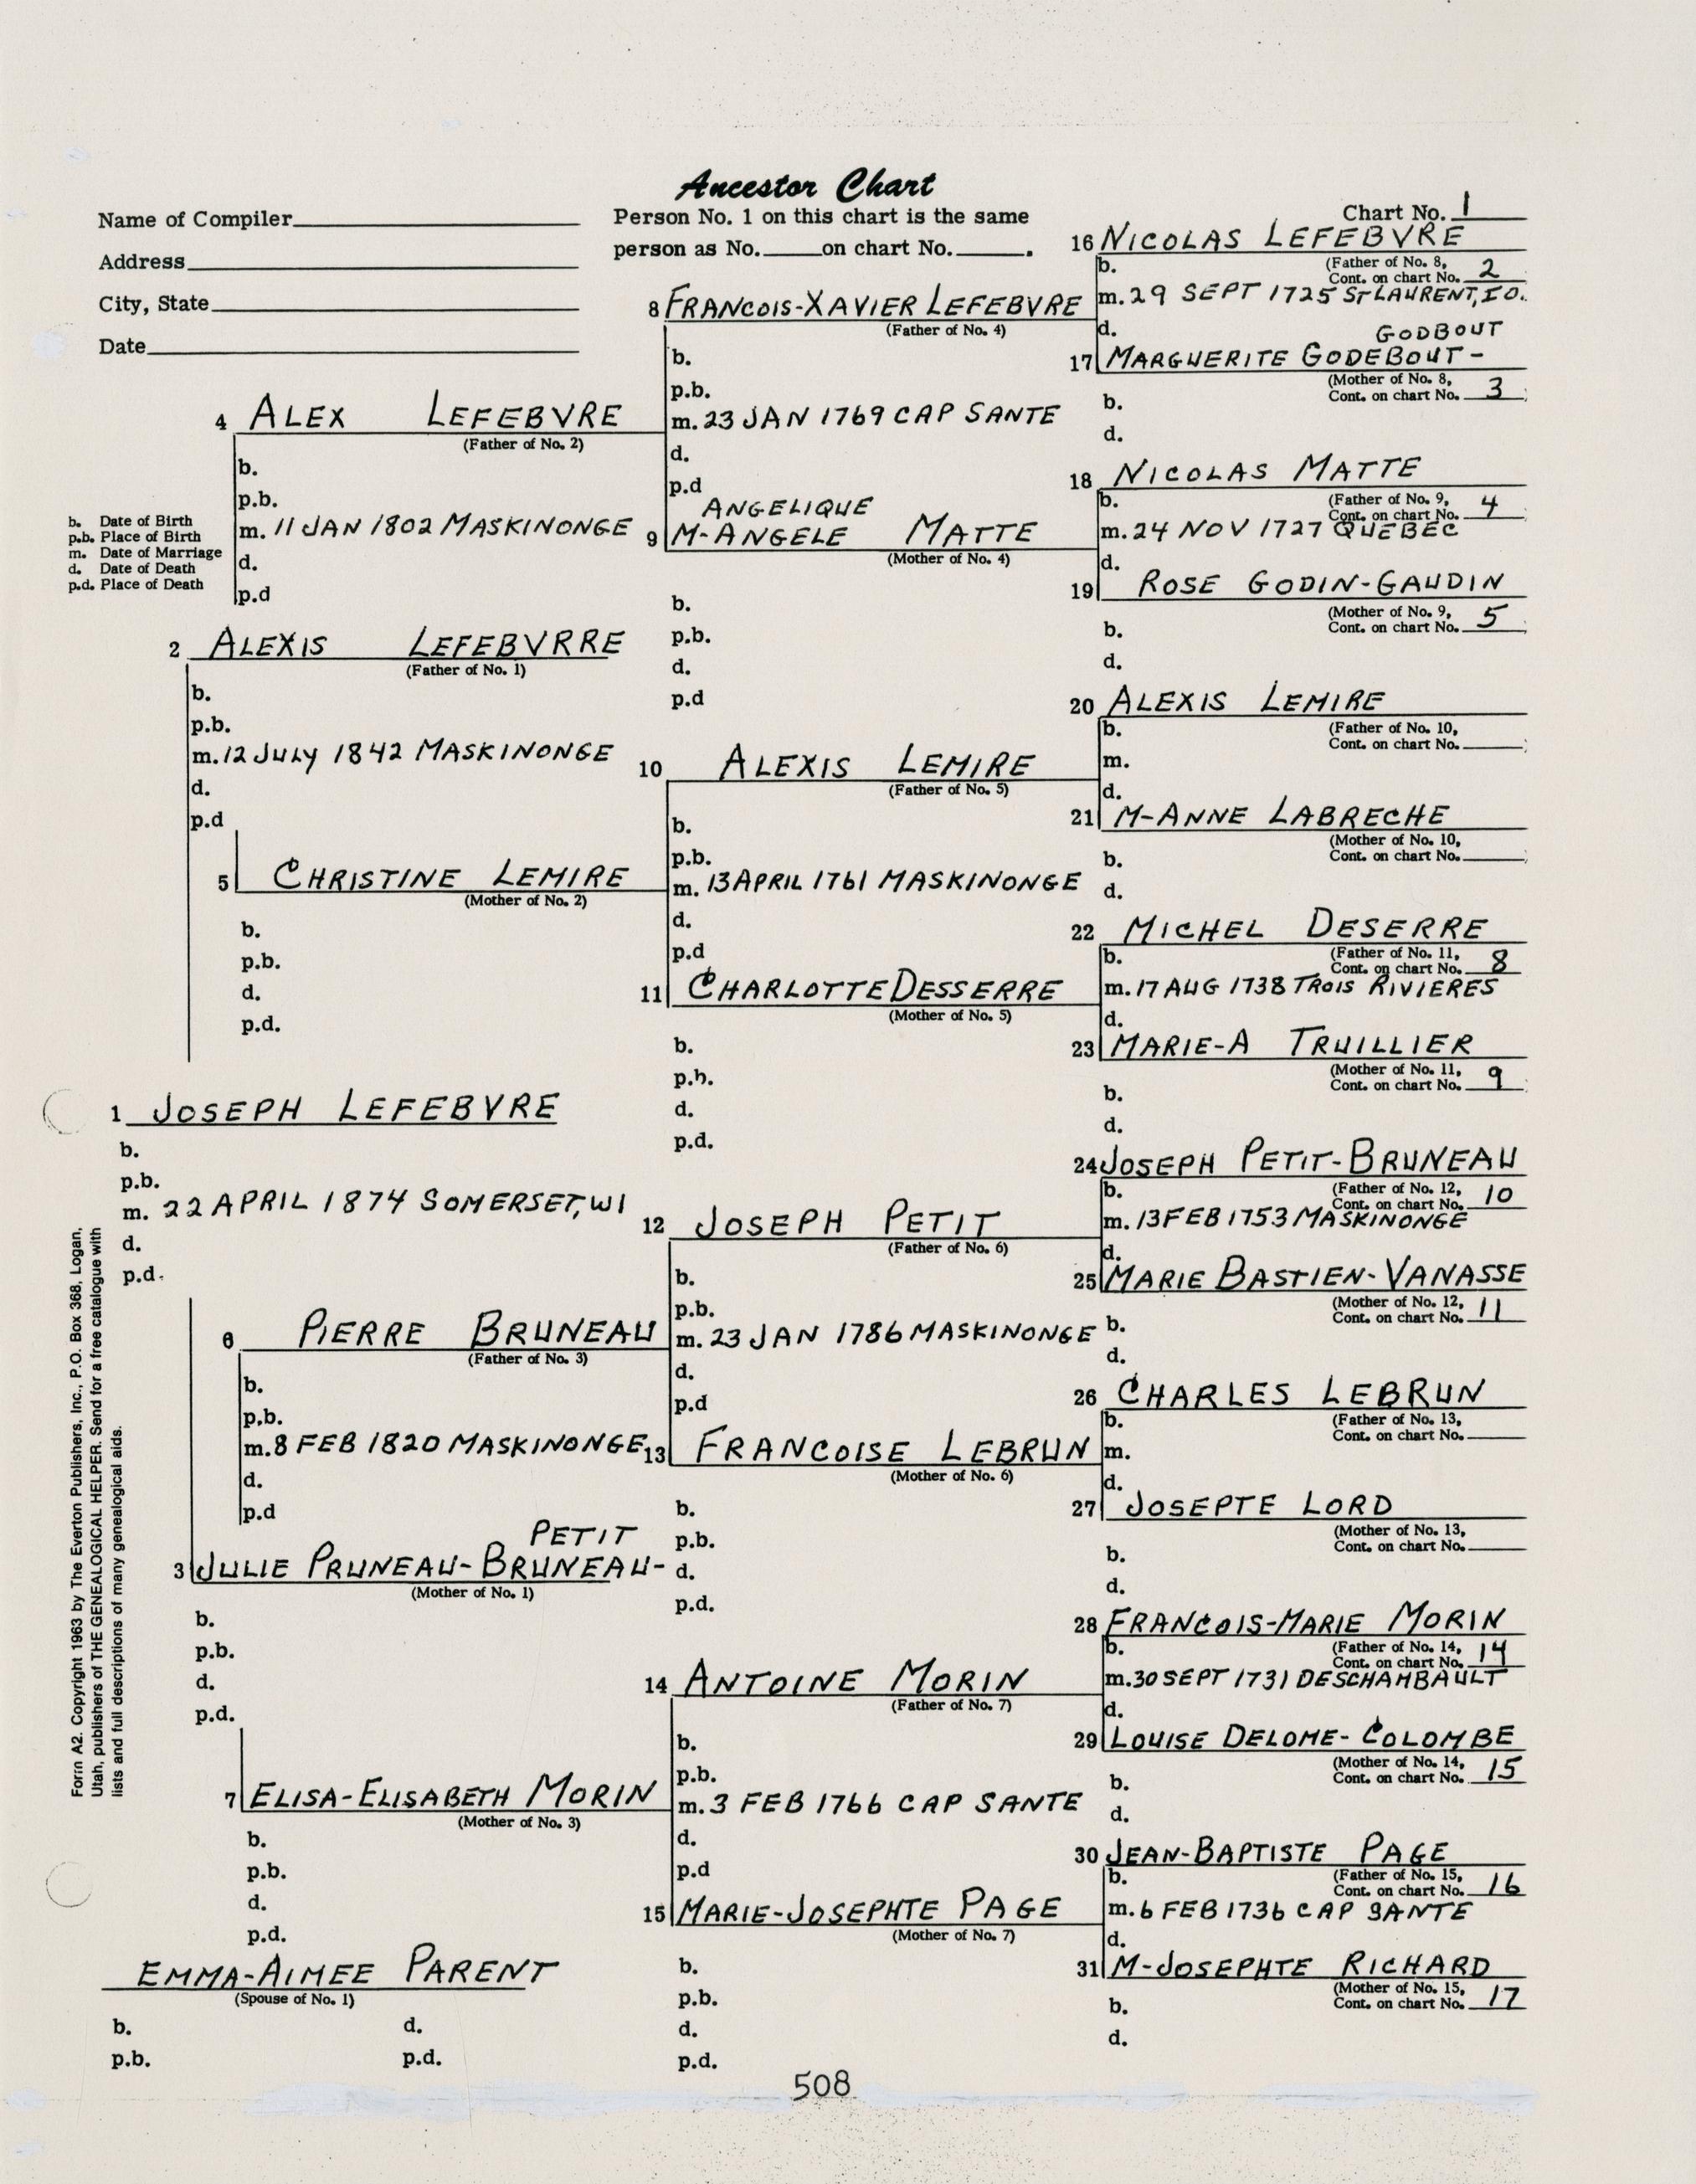 Ancestor Chart
Name of Compiler
Address
City, State
Date
Person No. 1 on this chart is the same
person as No. on chart No. .
Chart No. 1
b. Date of Birth
p.b. Place of Birth
m. Date of Marriage
d. Date of Death
p.d. Place of Death
1 JOSEPH LEFEBVRE
b.
p.b.
m. 22 APRIL 1874 SOMERSET, WI
d.
p.d.
2 ALEXIS LEFEBVRRE
(Father of No. 1)
b.
p.b.
m. 12 JULY 1842 MASKINONGE
d.
p.d
PETIT
3 JULIE PRUNEAU-BRUNEAU-
(Mother of No. 1)
b.
p.b.
d.
p.d.
4 ALEX LEFEBVRE
(Father of No. 2)
b.
p.b.
m. 11 JAN 1802 MASKINONGE
d.
p.d
5 CHRISTINE LEMIRE
(Mother of No. 2)
b.
p.b.
d.
p.d.
6 PIERRE BRUNEAU
(Father of No. 3)
b.
p.b.
m. 8 FEB 1820 MASKINONGE
d.
p.d
7 ELISA-ELISABETH MORIN
(Mother of No. 3)
b.
p.b.
d.
p.d.
EMMA-AIMEE PARENT
(Spouse of No. 1)
b. d.
p.b. p.d.
8 FRANCOIS-XAVIER LEFEBVRE
(Father of No. 4)
b.
p.b.
m. 23 JAN 1769 CAP SANTE
d.
p.d
ANGELIQUE
9 M-ANGELE MATTE
(Mother of No. 4)
b.
p.b.
d.
p.d
10 ALEXIS LEMIRE
(Father of No. 5)
b.
p.b.
m. 13 APRIL 1761 MASKINONGE
d.
p.d
11 CHARLOTTE DESSERRE
(Mother of No. 5)
b.
p.b.
d.
p.d.
12 JOSEPH PETIT
(Father of No. 6)
b.
p.b.
m. 23 JAN 1786 MASKINONGE
d.
p.d
13 FRANCOISE LEBRUN
(Mother of No. 6)
b.
p.b.
d.
p.d.
14 ANTOINE MORIN
(Father of No. 7)
b.
p.b.
m. 3 FEB 1766 CAP SANTE
d.
p.d
15 MARIE-JOSEPHTE PAGE
(Mother of No. 7)
b.
p.b.
d.
p.d.
16 NICOLAS LEFEBVRE
b. (Father of No. 8,
Cont. on chart No. 2
m. 29 SEPT 1725 ST LAURENT, I.O.
d.
GODBOUT
17 MARGUERITE GODEBOUT-
(Mother of No. 8,
Cont. on chart No. 3
b.
d.
18 NICOLAS MATTE
b. (Father of No. 9,
Cont. on chart No. 4
m. 24 NOV 1727 QUEBEC
d.
19 ROSE GODIN-GAUDIN
(Mother of No. 9,
Cont. on chart No. 5
b.
d.
20 ALEXIS LEMIRE
b. (Father of No. 10,
Cont. on chart No.
m.
d.
21 M-ANNE LABRECHE
(Mother of No. 10,
Cont. on chart No.
b.
d.
22 MICHEL DESERRE
b. (Father of No. 11,
Cont. on chart No. 8
m. 17 AUG 1738 TROIS RIVIERES
d.
23 MARIE-A TRUILLIER
(Mother of No. 11,
Cont. on chart No. 9
b.
d.
24 JOSEPH PETIT-BRUNEAU
b. (Father of No. 12,
Cont. on chart No. 10
m. 13 FEB 1753 MASKINONGE
d.
25 MARIE BASTIEN-VANASSE
(Mother of No. 12,
Cont. on chart No. 11
b.
d.
26 CHARLES LEBRUN
b. (Father of No. 13,
Cont. on chart No.
m.
d.
27 JOSEPTE LORD
(Mother of No. 13,
Cont. on chart No.
b.
d.
28 FRANCOIS-MARIE MORIN
b. (Father of No. 14,
Cont. on chart No. 14
m. 30 SEPT 1731 DESCHAMBAULT
d.
29 LOUISE DELOME-COLOMBE
(Mother of No. 14,
Cont. on chart No. 15
b.
d.
30 JEAN-BAPTISTE PAGE
b. (Father of No. 15,
Cont. on chart No. 16
m. 6 FEB 1736 CAP SANTE
d.
31 M-JOSEPHTE RICHARD
(Mother of No. 15,
Cont. on chart No. 17
b.
d.
Form A2. Copyright 1963 by The Everton Publishers, Inc., P.O. Box 368, Logan,
Utah, publishers of THE GENEALOGICAL HELPER. Send for a free catalogue with
lists and full descriptions of many genealogical aids.
508